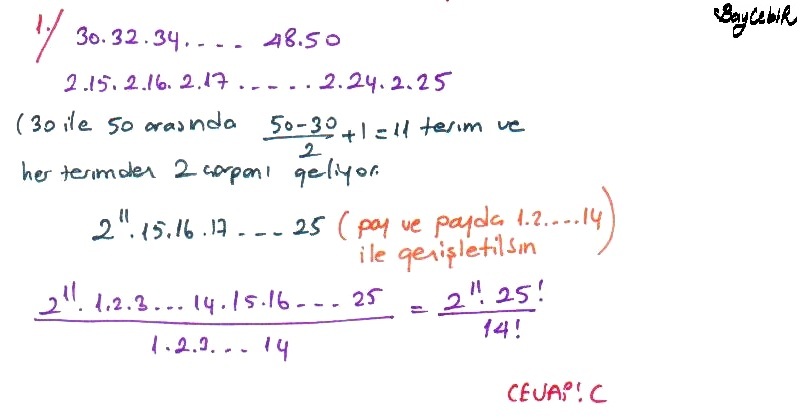 BayCebiR
1.) 30.32.34.... 48.50
2.15.2.16.2.17.....2.24.2.25
(30 ile 50 arasında (50-30)/2 + 1 = 11 terim ve
her terimden 2 çarpanı geliyor.
2^11.15.16.17---25 (pay ve payda 1.2....14
ile genişletilsin)
(2^11.1.2.3...14.15.16---25)/(1.2.3...14) = (2^11.25!)/14!
CEVAP: C